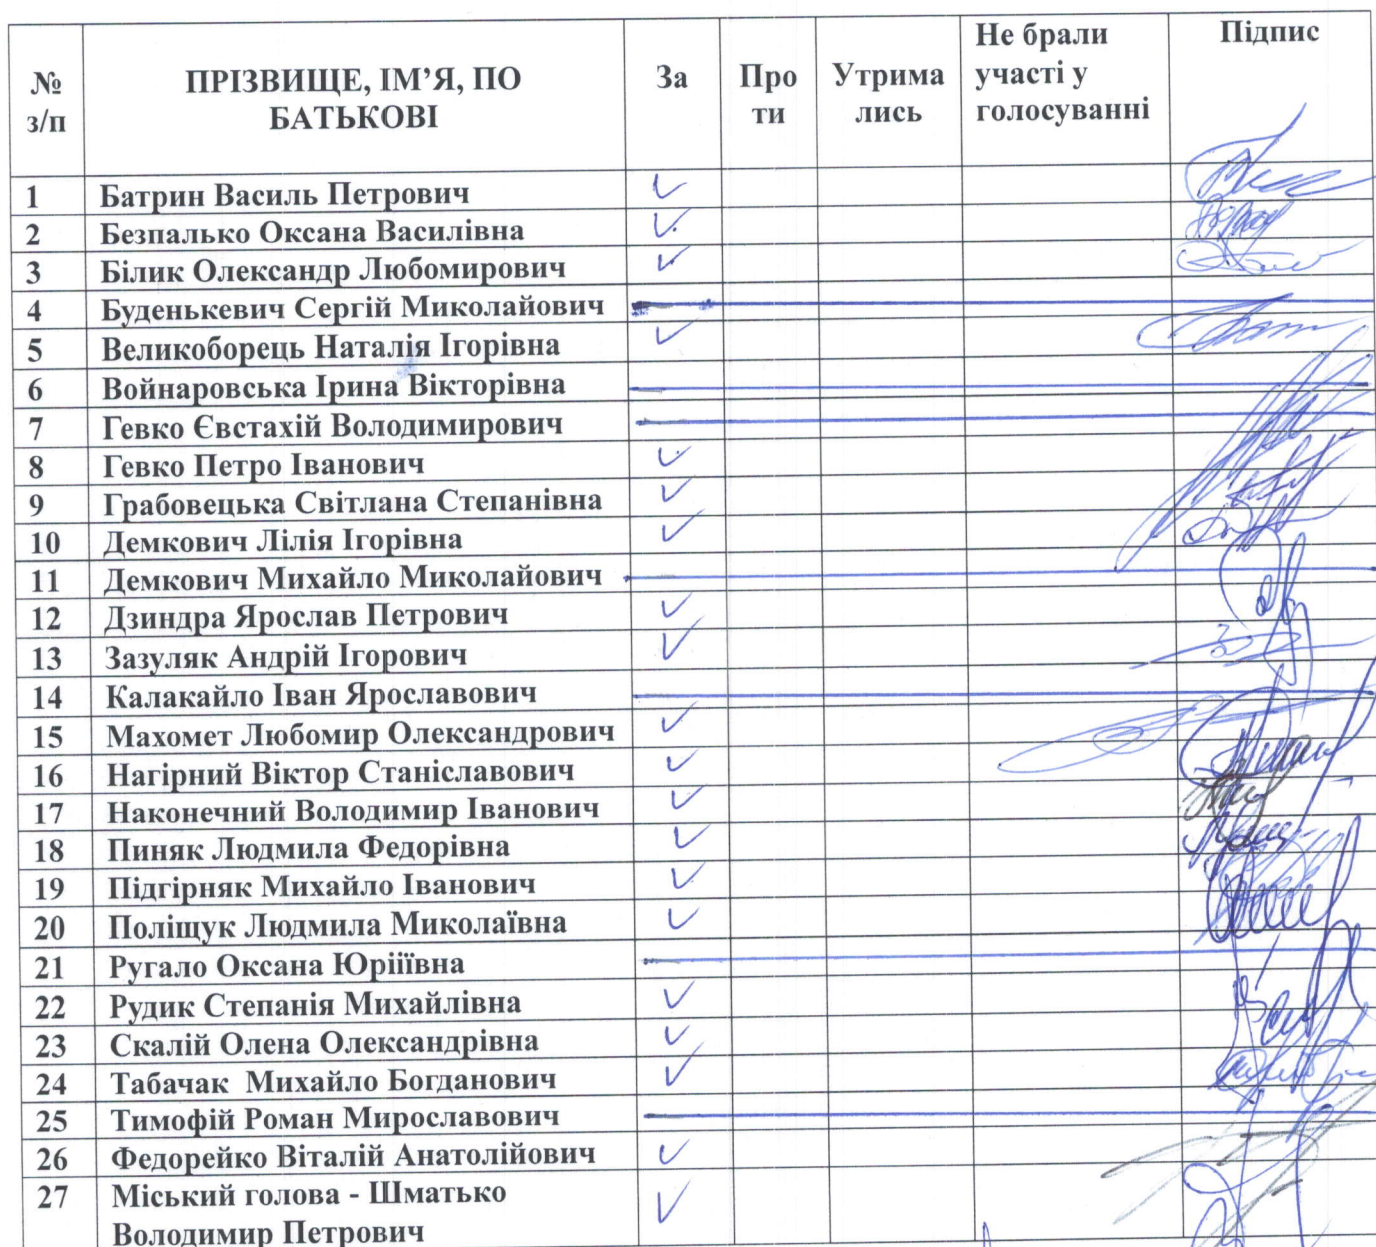 № з/п ПРІЗВИЩЕ, ІМ’Я, ПО БАТЬКОВІ За Про ти Утрима лись Не брали участі у голосуванні Підпис
1 Батрин Василь Петрович ✓
2 Безпалько Оксана Василівна ✓
3 Білик Олександр Любомирович ✓
4 Буденькевич Сергій Миколайович
5 Великоборець Наталія Ігорівна ✓
6 Войнаровська Ірина Вікторівна
7 Гевко Євстахій Володимирович
8 Гевко Петро Іванович ✓
9 Грабовецька Світлана Степанівна ✓
10 Демкович Лілія Ігорівна ✓
11 Демкович Михайло Миколайович
12 Дзиндра Ярослав Петрович ✓
13 Зазуляк Андрій Ігорович ✓
14 Калакайло Іван Ярославович
15 Махомет Любомир Олександрович ✓
16 Нагірний Віктор Станіславович ✓
17 Наконечний Володимир Іванович ✓
18 Пиняк Людмила Федорівна ✓
19 Підгірняк Михайло Іванович ✓
20 Поліщук Людмила Миколаївна ✓
21 Ругало Оксана Юріїївна
22 Рудик Степанія Михайлівна ✓
23 Скалій Олена Олександрівна ✓
24 Табачак Михайло Богданович ✓
25 Тимофій Роман Мирославович
26 Федорейко Віталій Анатолійович ✓
27 Міський голова - Шматько
Володимир Петрович ✓